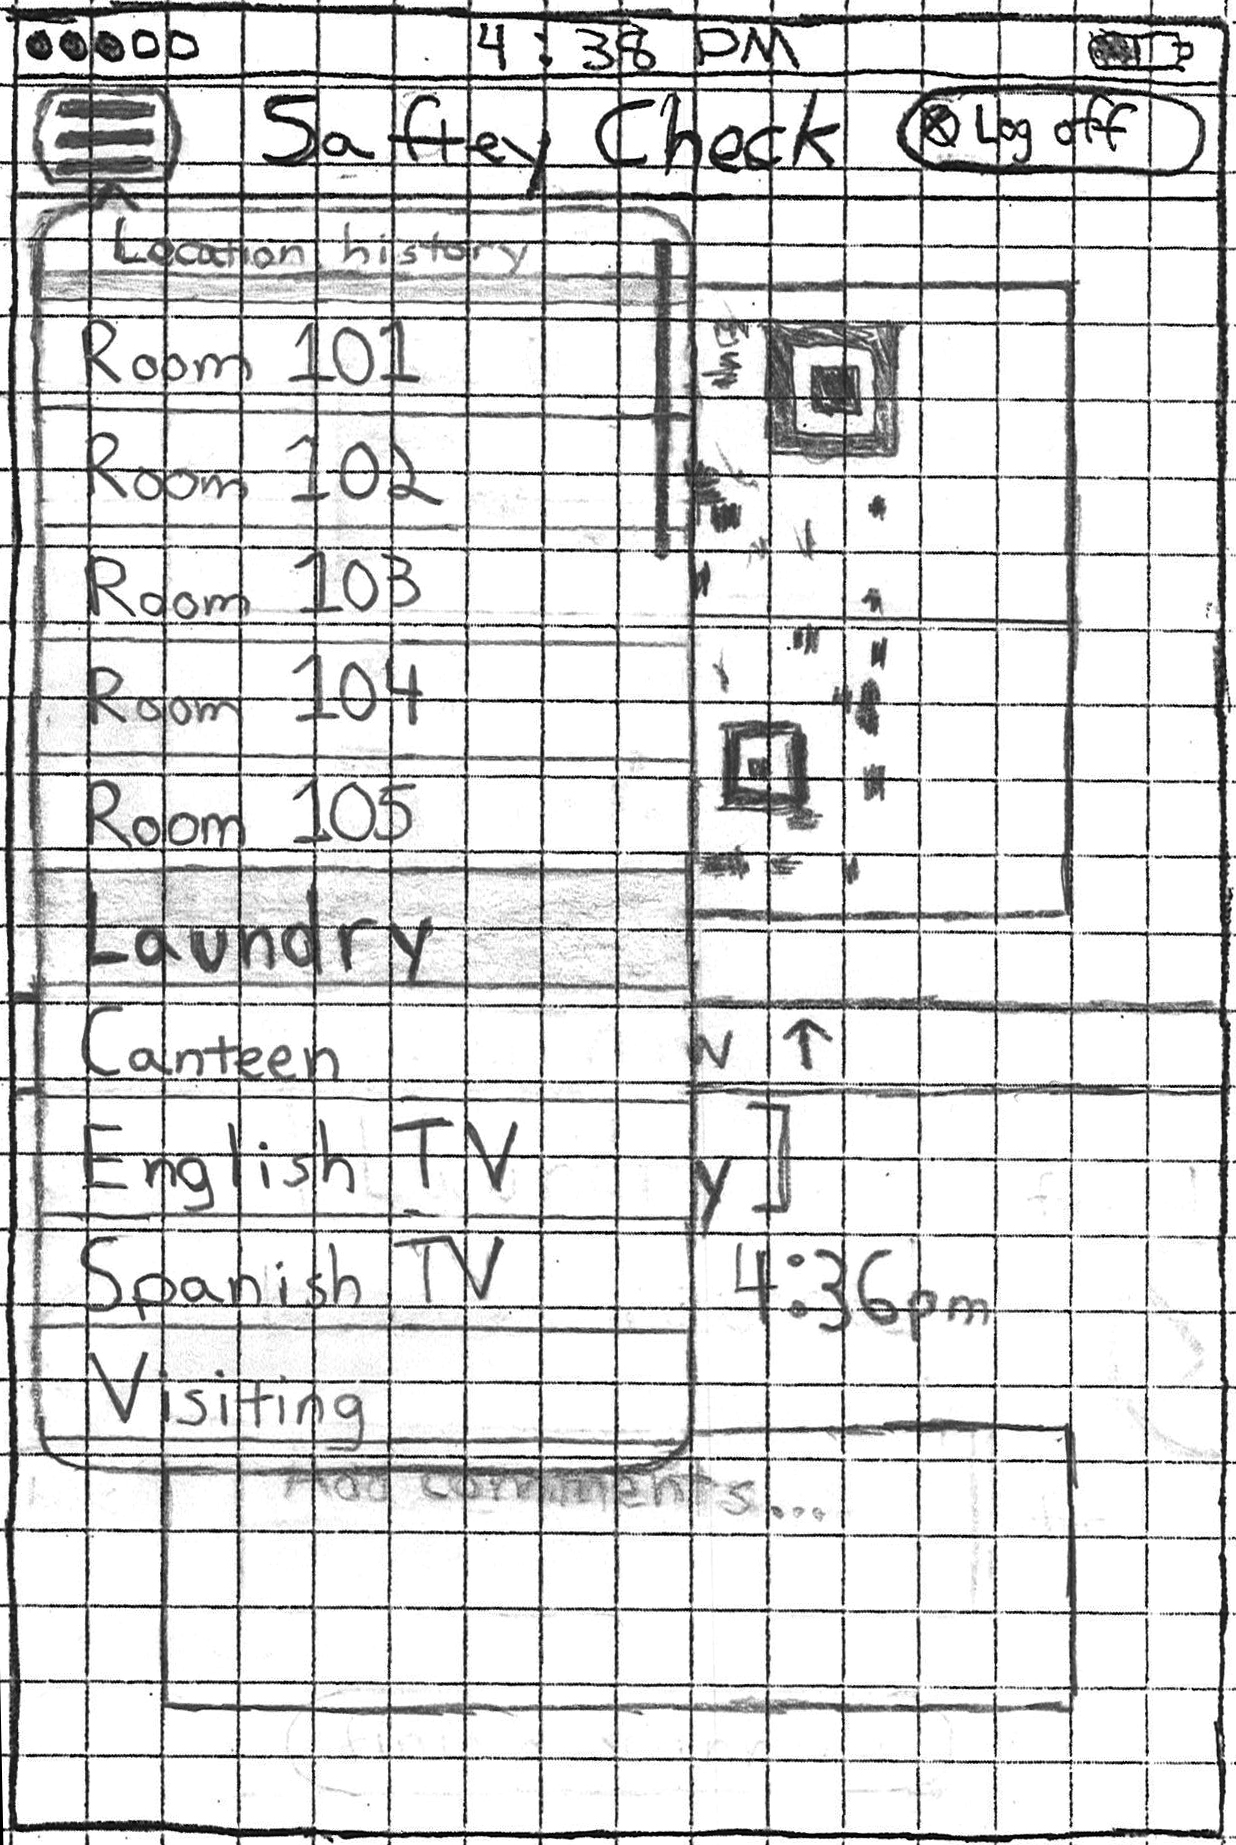 4:38 PM
Saftey Check
Log off
Location history
Room 101
Room 102
Room 103
Room 104
Room 105
Laundry
Canteen
English TV
Spanish TV
Visiting
w ↑
y]
4:36pm
Add comments...